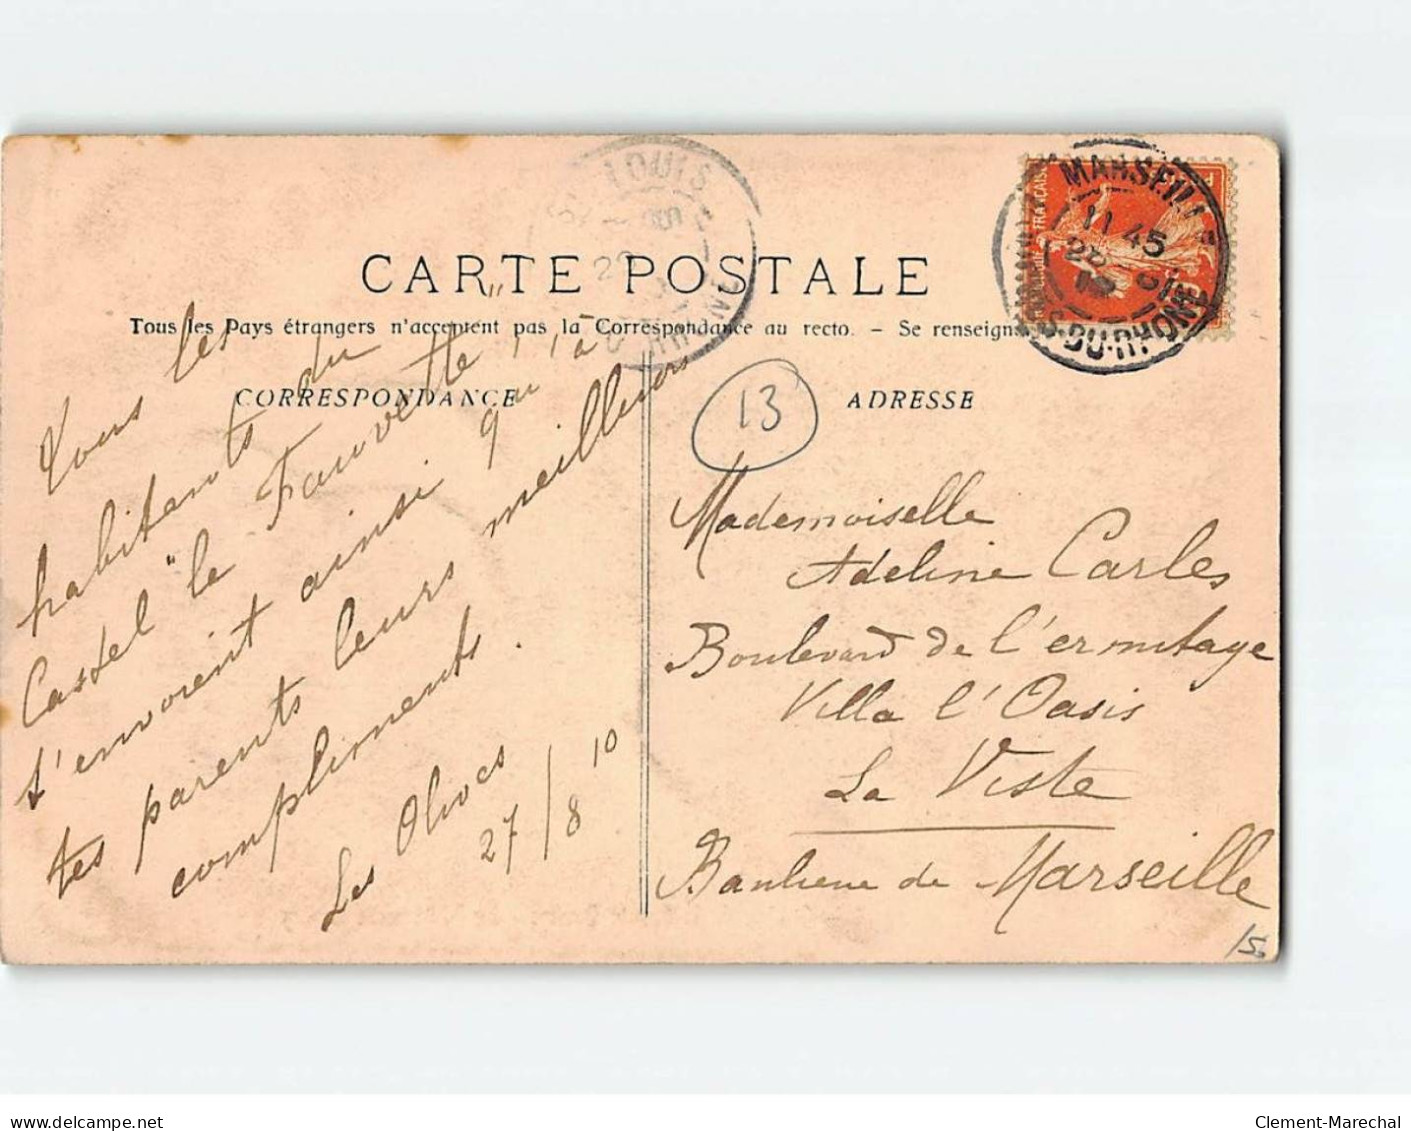 CARTE POSTALE
Tous les Pays étrangers n'acceptent pas la Correspondance au recto. - Se renseign
CORRESPONDANCE
ADRESSE
ST LOUIS
MARSEILLE
11 45
B. DU RHONE
13
Tous les
habitents du
Castel "le Fauvette"
t'envoient ainsi qu'à
tes parents leurs meilleurs
compliments.
Les Olives
27/8 10
Mademoiselle
Adeline Carles
Boulevard de l'ermitage
Villa l'Oasis
La Viste
Banlieue de Marseille
15
www.delcampe.net
Clement-Marechal